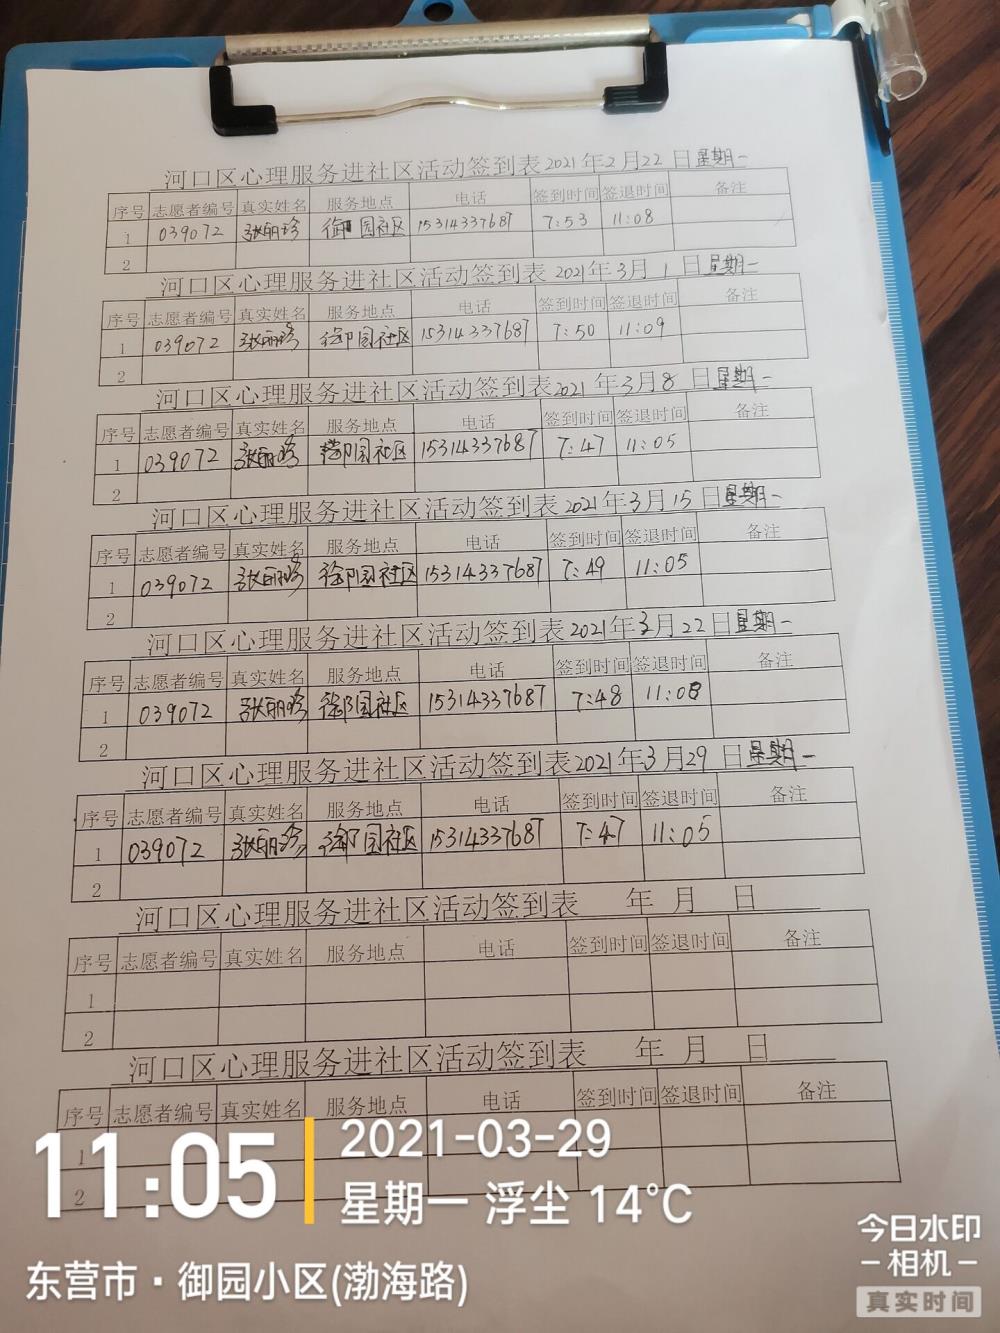 河口区心理服务进社区活动签到表2021年2月22日星期一
序号 志愿者编号 真实姓名 服务地点 电话 签到时间 签退时间 备注
1 039072 张丽珍 御园社区 15314337687 7:53 11:08
2
河口区心理服务进社区活动签到表2021年3月1日星期一
序号 志愿者编号 真实姓名 服务地点 电话 签到时间 签退时间 备注
1 039072 张丽珍 御园社区 15314337687 7:50 11:09
2
河口区心理服务进社区活动签到表2021年3月8日星期一
序号 志愿者编号 真实姓名 服务地点 电话 签到时间 签退时间 备注
1 039072 张丽珍 御园社区 15314337687 7:47 11:05
2
河口区心理服务进社区活动签到表2021年3月15日星期一
序号 志愿者编号 真实姓名 服务地点 电话 签到时间 签退时间 备注
1 039072 张丽珍 御园社区 15314337687 7:49 11:05
2
河口区心理服务进社区活动签到表2021年3月22日星期一
序号 志愿者编号 真实姓名 服务地点 电话 签到时间 签退时间 备注
1 039072 张丽珍 御园社区 15314337687 7:48 11:08
2
河口区心理服务进社区活动签到表2021年3月29日星期一
序号 志愿者编号 真实姓名 服务地点 电话 签到时间 签退时间 备注
1 039072 张丽珍 御园社区 15314337687 7:47 11:05
2
河口区心理服务进社区活动签到表 年 月 日
序号 志愿者编号 真实姓名 服务地点 电话 签到时间 签退时间 备注
1
2
河口区心理服务进社区活动签到表 年 月 日
序号 志愿者编号 真实姓名 服务地点 电话 签到时间 签退时间 备注
1
2
11:05
2021-03-29
星期一 浮尘 14℃
东营市·御园小区(渤海路)
今日水印
-相机-
真实时间